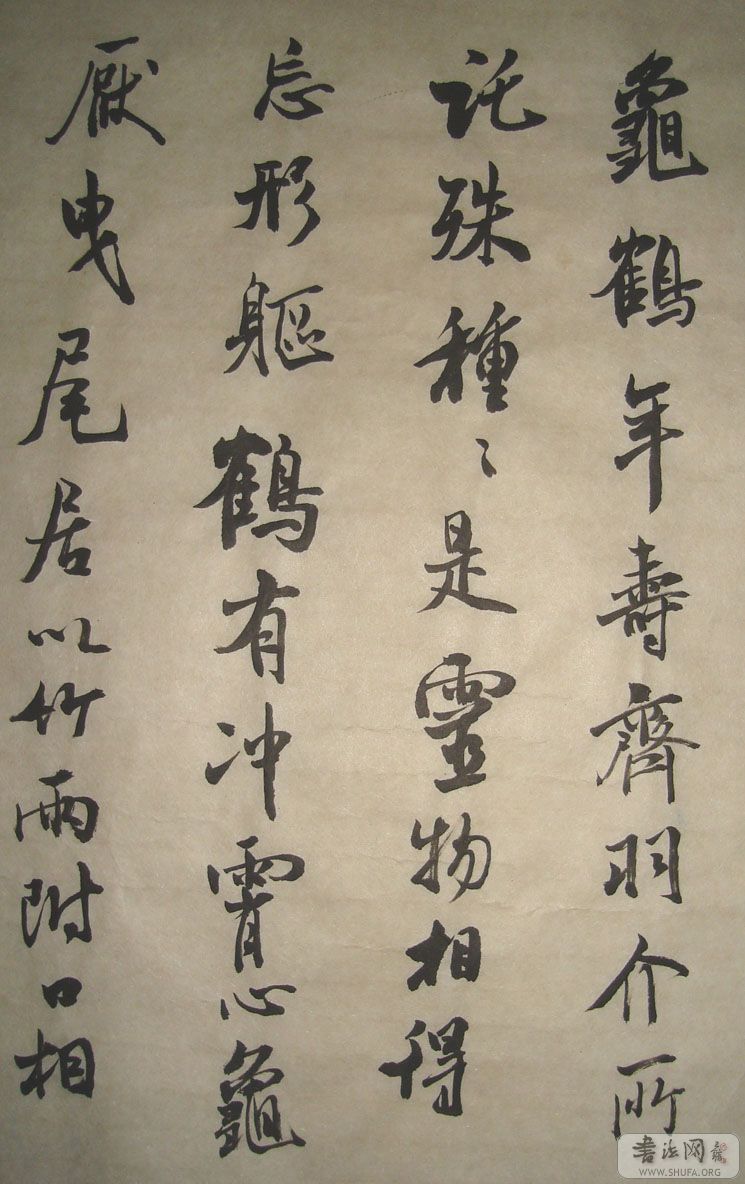 龜鶴年壽齊羽介所
託殊種〻是靈物相得
忘形軀鶴有冲霄心龜
厭曳尾居以竹兩附口相
书法网
WWW.SHUFA.ORG